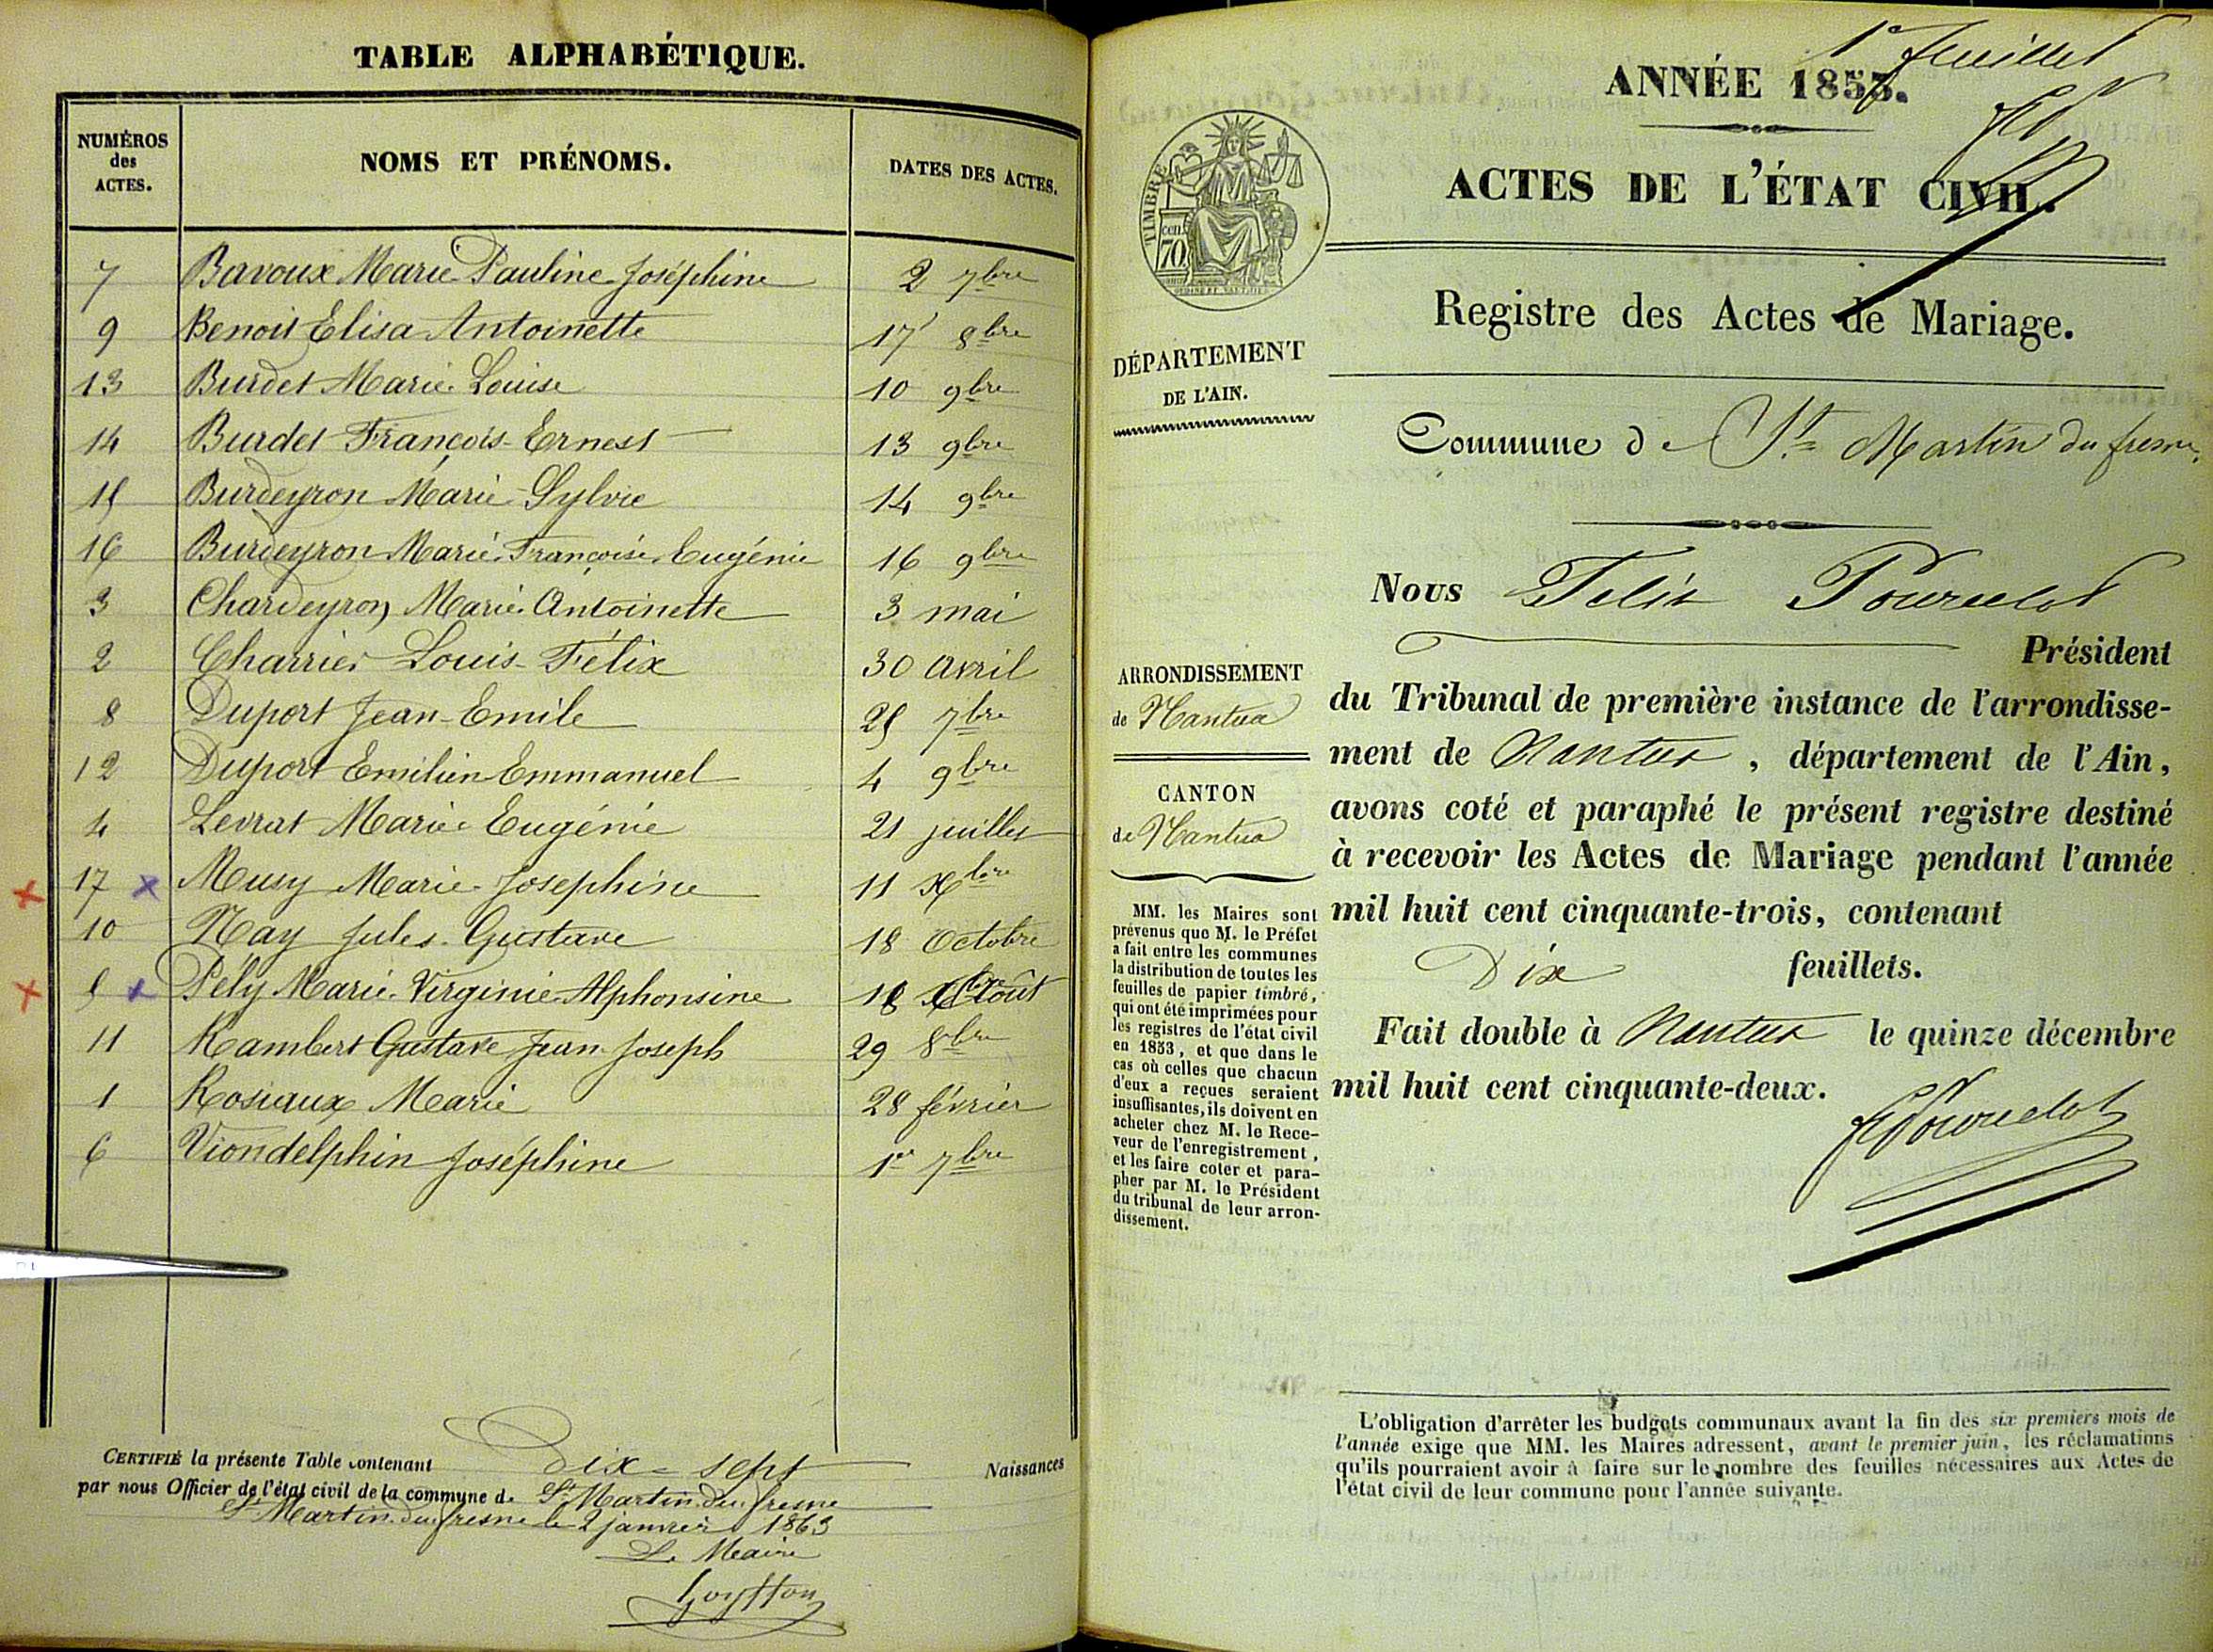 TABLE ALPHABÉTIQUE.
NUMÉROS
des
ACTES.
NOMS ET PRÉNOMS.
DATES DES ACTES.
7 Bavoux Marie Pauline Joséphine 2 7bre
9 Benoit Elisa Antoinette 17 8bre
13 Burdet Marie Louise 10 9bre
14 Burdet François Ernest 13 9bre
15 Burdeyron Marie Sylvie 14 9bre
16 Burdeyron Marie Françoise Eugénie 16 9bre
3 Chardeyron Marie Antoinette 3 mai
2 Charrier Louis Félix 30 avril
8 Duport Jean Emile 25 7bre
12 Duport Emilien Emmanuel 4 9bre
4 Levrat Marie Eugénie 21 juillet
17 Musy Marie Josephine 11 Xbre
10 Nay Jules Gustave 18 Octobre
5 Pély Marie Virginie Alphonsine 18 Août
11 Rambert Gustave Jean Joseph 29 8bre
1 Rosiaux Marie 28 février
6 Viondelphin Joséphine 1er 7bre
CERTIFIÉ la présente Table contenant Dix-sept Naissances
par nous Officier de l'état civil de la commune de St Martin du fresne
St Martin du fresne le 2 janvier 1863
Le Maire
Goyffon
1er feuillet
ANNÉE 1853.
ACTES DE L'ÉTAT CIVIL.
TIMBRE
70 cen.
Registre des Actes de Mariage.
DÉPARTEMENT
DE L'AIN.
Commune de St Martin du fresne
Nous Felix Pourcelot
Président
ARRONDISSEMENT
de Nantua
CANTON
de Nantua
du Tribunal de première instance de l'arrondisse-
ment de Nantua, département de l'Ain,
avons coté et paraphé le présent registre destiné
à recevoir les Actes de Mariage pendant l'année
mil huit cent cinquante-trois, contenant
Dix feuillets.
Fait double à Nantua le quinze décembre
mil huit cent cinquante-deux.
Pourcelot
MM. les Maires sont
prévenus que M. le Préfet
a fait entre les communes
la distribution de toutes les
feuilles de papier timbré,
qui ont été imprimées pour
les registres de l'état civil
en 1853, et que dans le
cas où celles que chacun
d'eux a reçues seraient
insuffisantes, ils doivent en
acheter chez M. le Rece-
veur de l'enregistrement,
et les faire coter et para-
pher par M. le Président
du tribunal de leur arron-
dissement.
L'obligation d'arrêter les budgets communaux avant la fin des six premiers mois de
l'année exige que MM. les Maires adressent, avant le premier juin, les réclamations
qu'ils pourraient avoir à faire sur le nombre des feuilles nécessaires aux Actes de
l'état civil de leur commune pour l'année suivante.